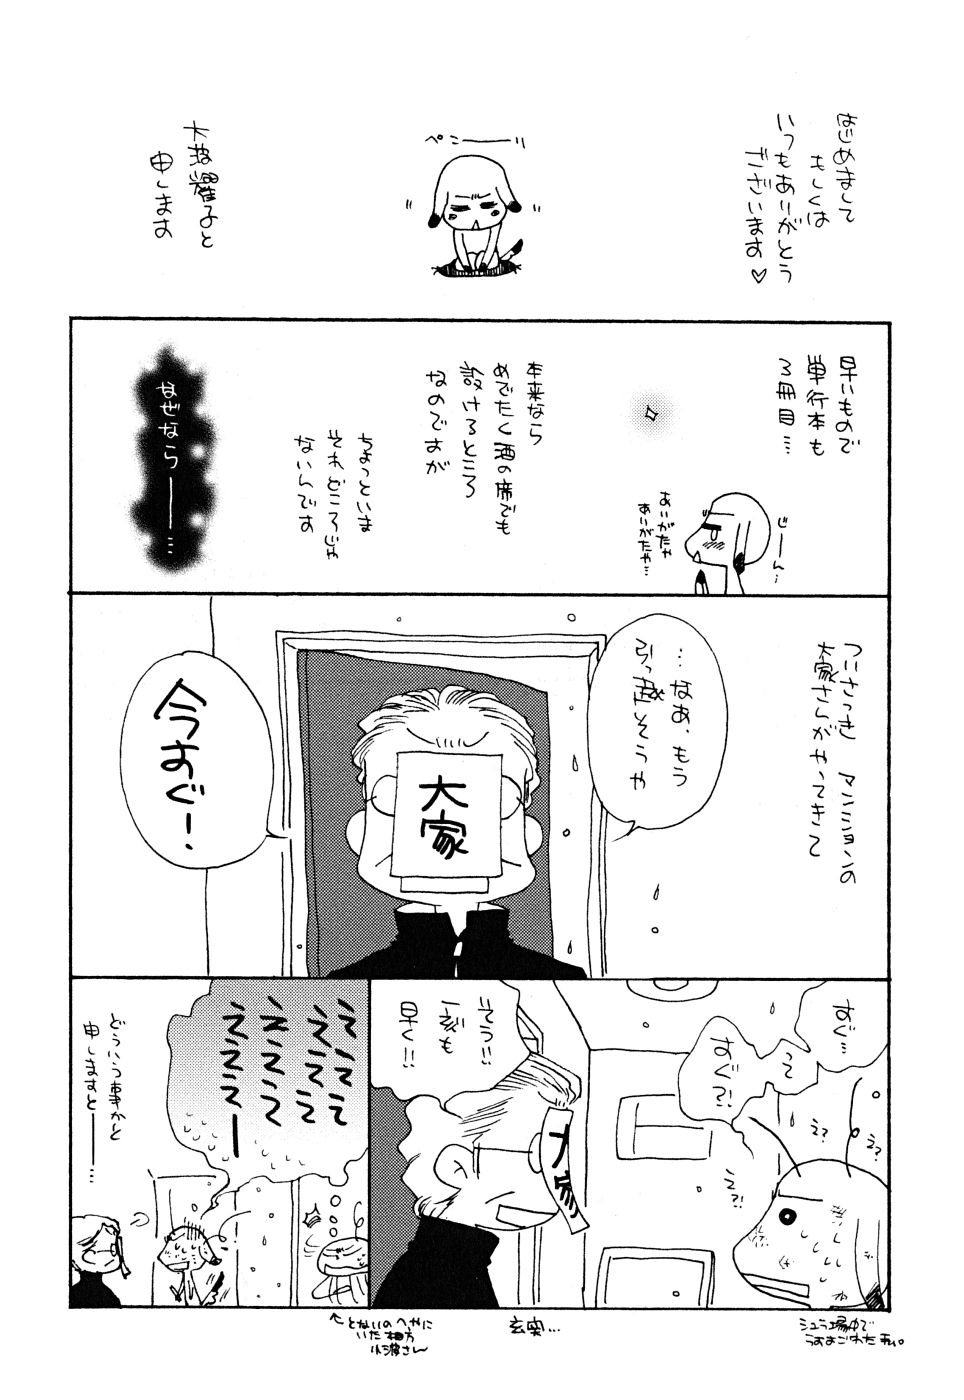 はじめまして
もしくは
いつもありがとう
ございます♡
ペコーーーリ
大波耀子と
申します
早いもので
単行本も
3冊目…
じーん…
ありがたや
ありがたや…
本来なら
めでたく酒の席でも
設けるところ
なのですが
ちょっといま
それどころじゃ
ないんです
なぜなら――…
ついさっき マンションの
大家さんがやってきて
…なあ、もう
引っ越そうや
大家
今すぐ!
すぐ…
って
すぐ?!
え?
え?
え?!
シュラ場中で
そう!!
一刻も
早く!!
大家
玄関…
ええええ
ええええ
ええええ
えええー
どういう事かと
申しますと――…
となりのへやに
いた相方
小波さん